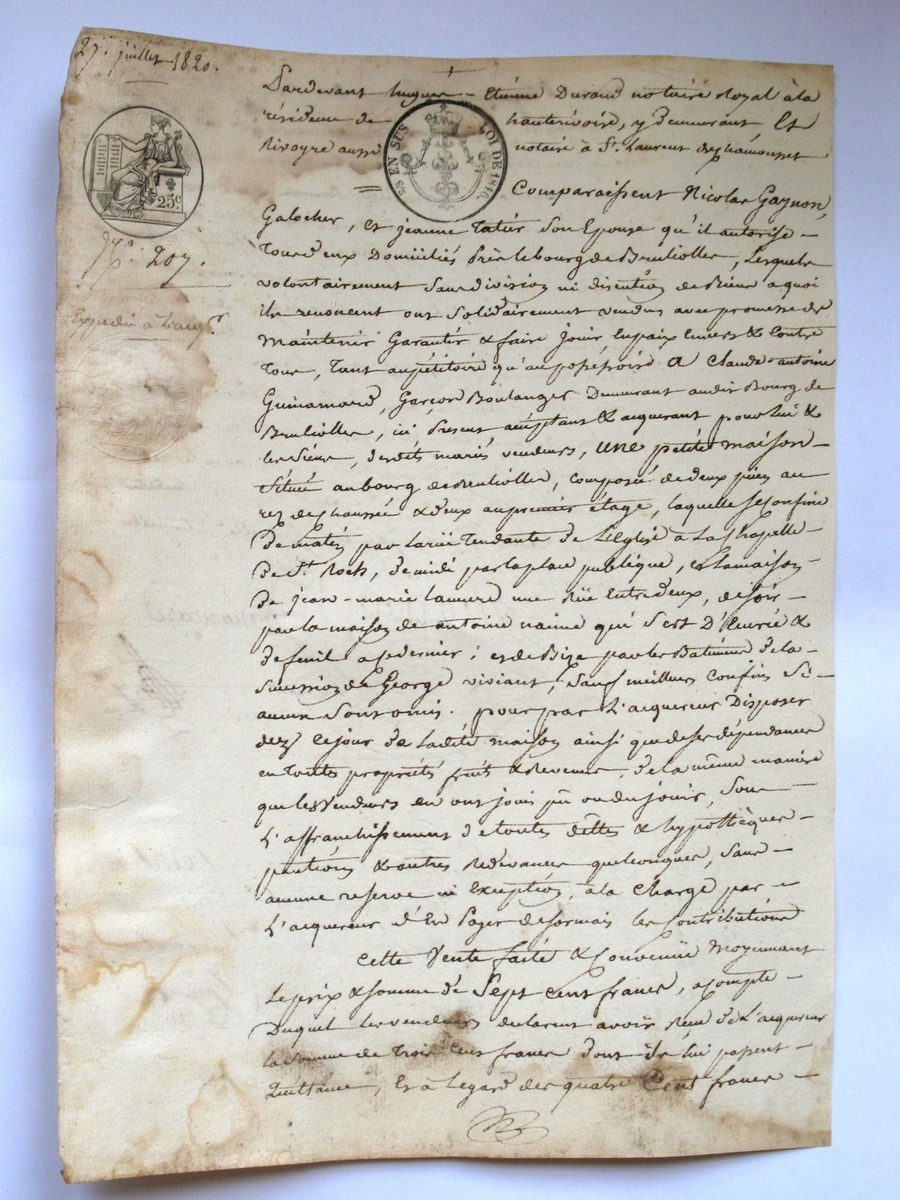 27. juillet 1820.
Pardevant hugues - Etiénne Durand notaire Royal à la
résidence de hauterivoire, y demeurant, Et
Rivoyre aussi notaire à St. Laurent de chamousset
25 EN SUS LOI DE 1816
25c.
Comparaissent Nicolas Gagnon,
N.º 207.
Galocher, et jeanne Tatér Son Epouse qu'il autorise -
Tous deux Domiciliés Près le bourg de Brulliolles, Lesquels
Expedié à L'acqr.
volontairement Sans division ni discution de Biens a quoi
ils renoncent ont Solidairement vendus avec promesse de
Maintenir Garantir & faire jouir En paix Envers & Contre
Tous, Tant au pétitoire qu'au possessoire A Claude-antoine
Guinamard, Garçon Boulanger Demeurant audit Bourg de
Brulliolles, ici Présent acceptant & acquerant pour lui &
les Siens, desdits mariés vendeurs, une petite maison -
Située au bourg de Brulliolles, composée de deux pièces au
rez de chaussée & deux au premier étage, laquelle Se confine
De matin par la rüe Tendante de L'Eglise à La chapelle -
De St. Roch, de midi par la place publique, et la maison -
De jean-marie une Rüe Entredeux, de soir -
par la maison de antoine qui S'est D'Eurié &
; et de Bize par les Batimens de la
Succession de George viviant, Sauf meilleurs confins Si -
aucun Sont omis. pour par L'acquereur Disposer
dez ce jour de Ladite maison ainsi que de ses dépendances
en toutes propriétés fruits & Revenus, de la même manière
que les Vendeurs en ont joui pû ou du jouir, Sous -
L'affranchissement de toutes dettes & hypothèques -
pentions & autres Redevances quelconques, Sans -
aucune reserve ni Exception, à la Charge par -
L'acquereur d'En Payer desormais les Contributions
Cette Vente faite & Convenüe Moyennant
Le prix & Somme de Sept Cent francs, acompte -
Duquel les vendeurs declarent avoir Reçu de L'acquereur
la Somme de Trois Cent francs dont ils lui passent -
Quittance, Et à L'egard des quatre Cent francs -